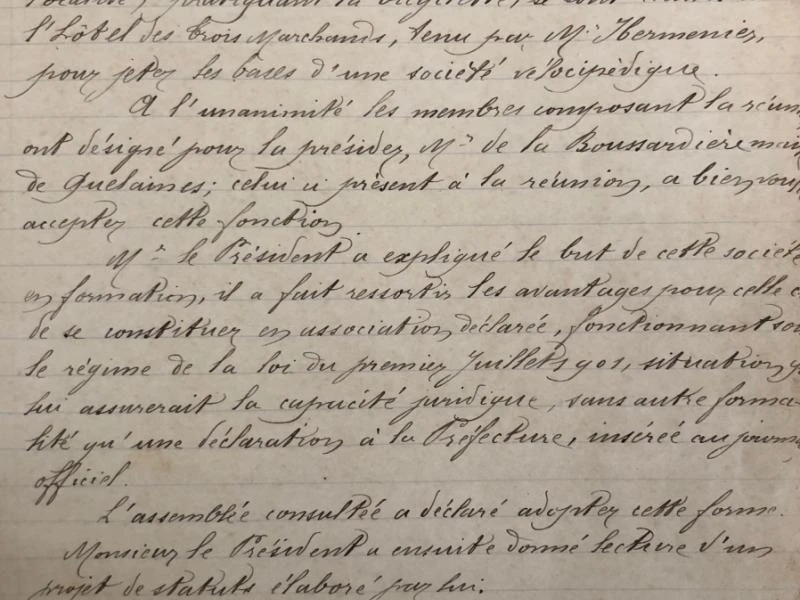 localité, pratiquant la bicyclette, se sont
l'Hôtel des trois Marchands, tenu par Mr Hermenier,
pour jeter les bases d'une société vélocipédique.
A l'unanimité les membres composant la réun
ont désigné pour la présider, Mr de la Boussardière mai
de Quelaines; celui ci présent à la réunion, a bien vou
accepter cette fonction.
Mr le Président a expliqué le but de cette société
en formation, il a fait ressortir les avantages pour celle c
de se constituer en association déclarée, fonctionnant sou
le régime de la loi du premier Juillet 1901, situation q
lui assurerait la capacité juridique, sans autre forma-
lité qu'une déclaration à la Préfecture, insérée au journa
officiel.
L'assemblée consultée a déclaré adopter cette forme.
Monsieur le Président a ensuite donné lecture d'un
projet de statuts élaboré par lui.